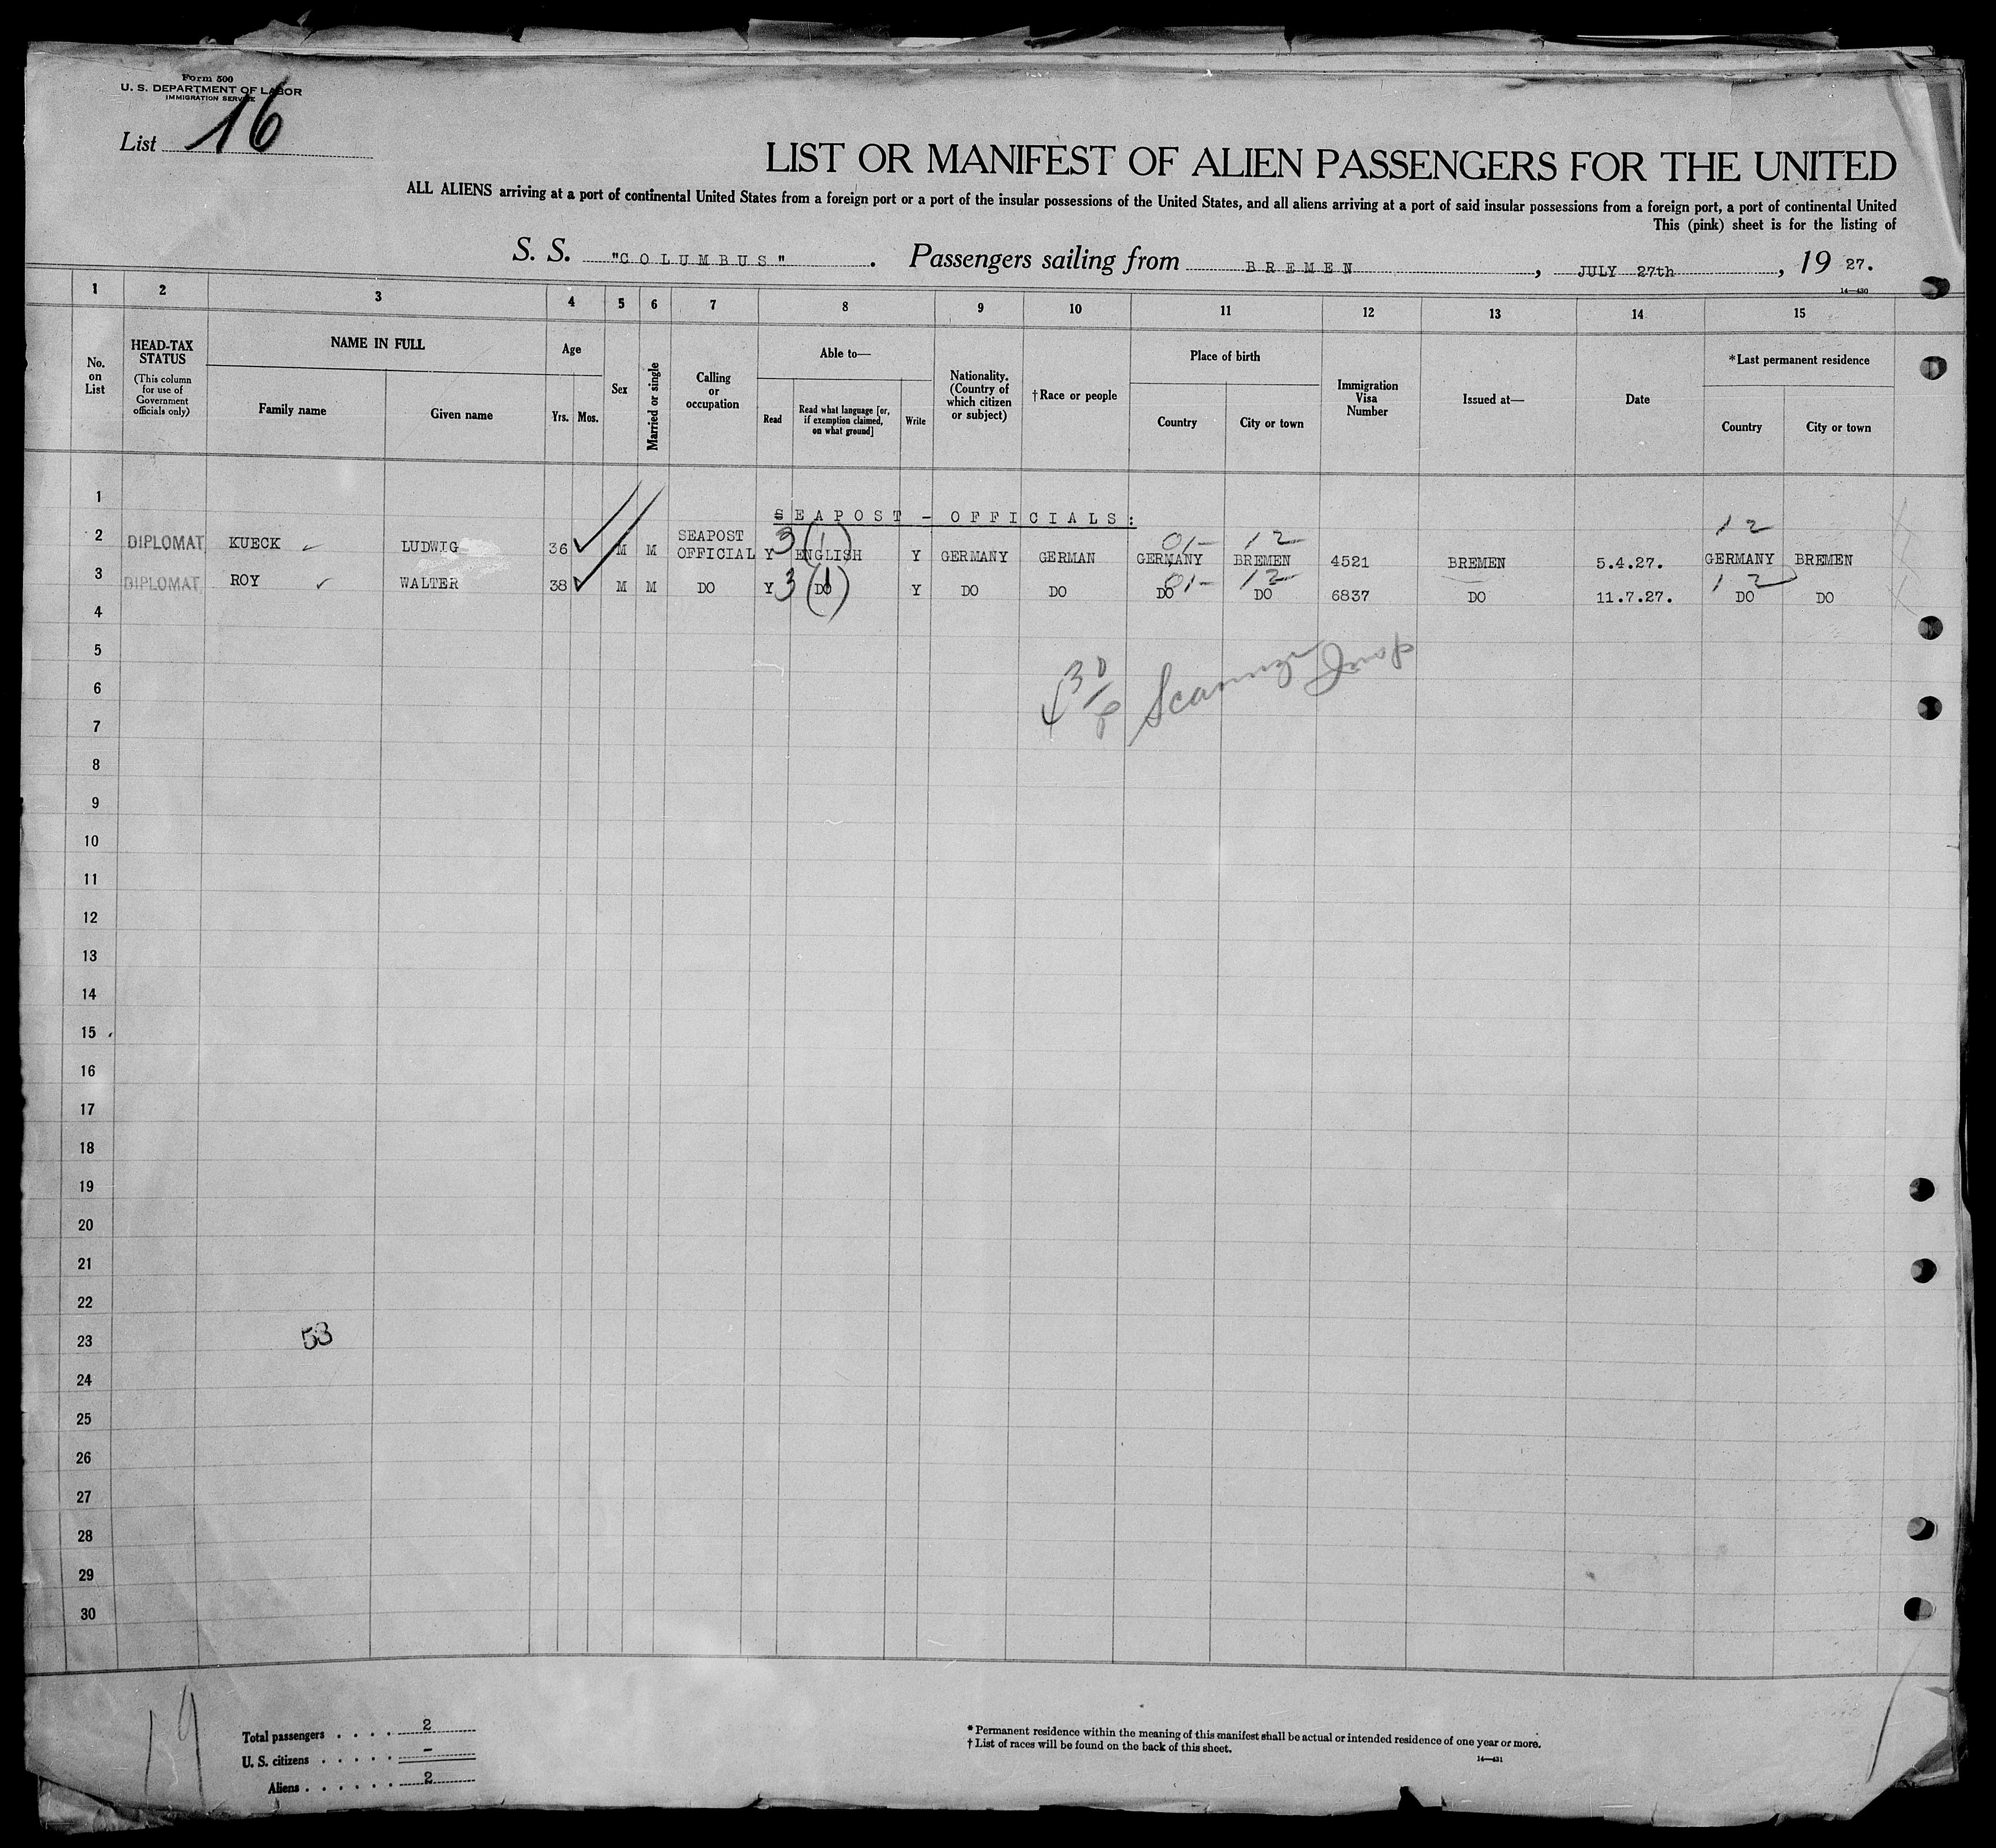 Form 500
U. S. DEPARTMENT OF LABOR
IMMIGRATION SERVICE
List 16
LIST OR MANIFEST OF ALIEN PASSENGERS FOR THE UNITED
ALL ALIENS arriving at a port of continental United States from a foreign port or a port of the insular possessions of the United States, and all aliens arriving at a port of said insular possessions from a foreign port, a port of continental United
This (pink) sheet is for the listing of
S. S. "COLUMBUS". Passengers sailing from BREMEN, JULY 27th, 19 27.
14—430
1 2 3 4 5 6 7 8 9 10 11 12 13 14 15
No. on List
HEAD-TAX STATUS
(This column for use of Government officials only)
NAME IN FULL
Family name
Given name
Age
Yrs. Mos.
Sex
Married or single
Calling or occupation
Able to—
Read
Read what language [or, if exemption claimed, on what ground]
Write
Nationality. (Country of which citizen or subject)
†Race or people
Place of birth
Country
City or town
Immigration Visa Number
Issued at—
Date
*Last permanent residence
Country
City or town
1
SEAPOST - OFFICIALS:
3 (1) 01- 12 12
2 DIPLOMAT KUECK LUDWIG 36 M M SEAPOST OFFICIAL Y ENGLISH Y GERMANY GERMAN GERMANY BREMEN 4521 BREMEN 5.4.27. GERMANY BREMEN
3 (1) 01- 12 12
3 DIPLOMAT ROY WALTER 38 M M DO Y DO Y DO DO DO DO 6837 DO 11.7.27. DO DO
4
5
6
7
8
9
10
11
12
13
14
15
16
17
18
19
20
21
22
23 53
24
25
26
27
28
29
30
19
Total passengers . . . . 2
U. S. citizens . . . . . -
Aliens . . . . . . 2
* Permanent residence within the meaning of this manifest shall be actual or intended residence of one year or more.
† List of races will be found on the back of this sheet.
14—431